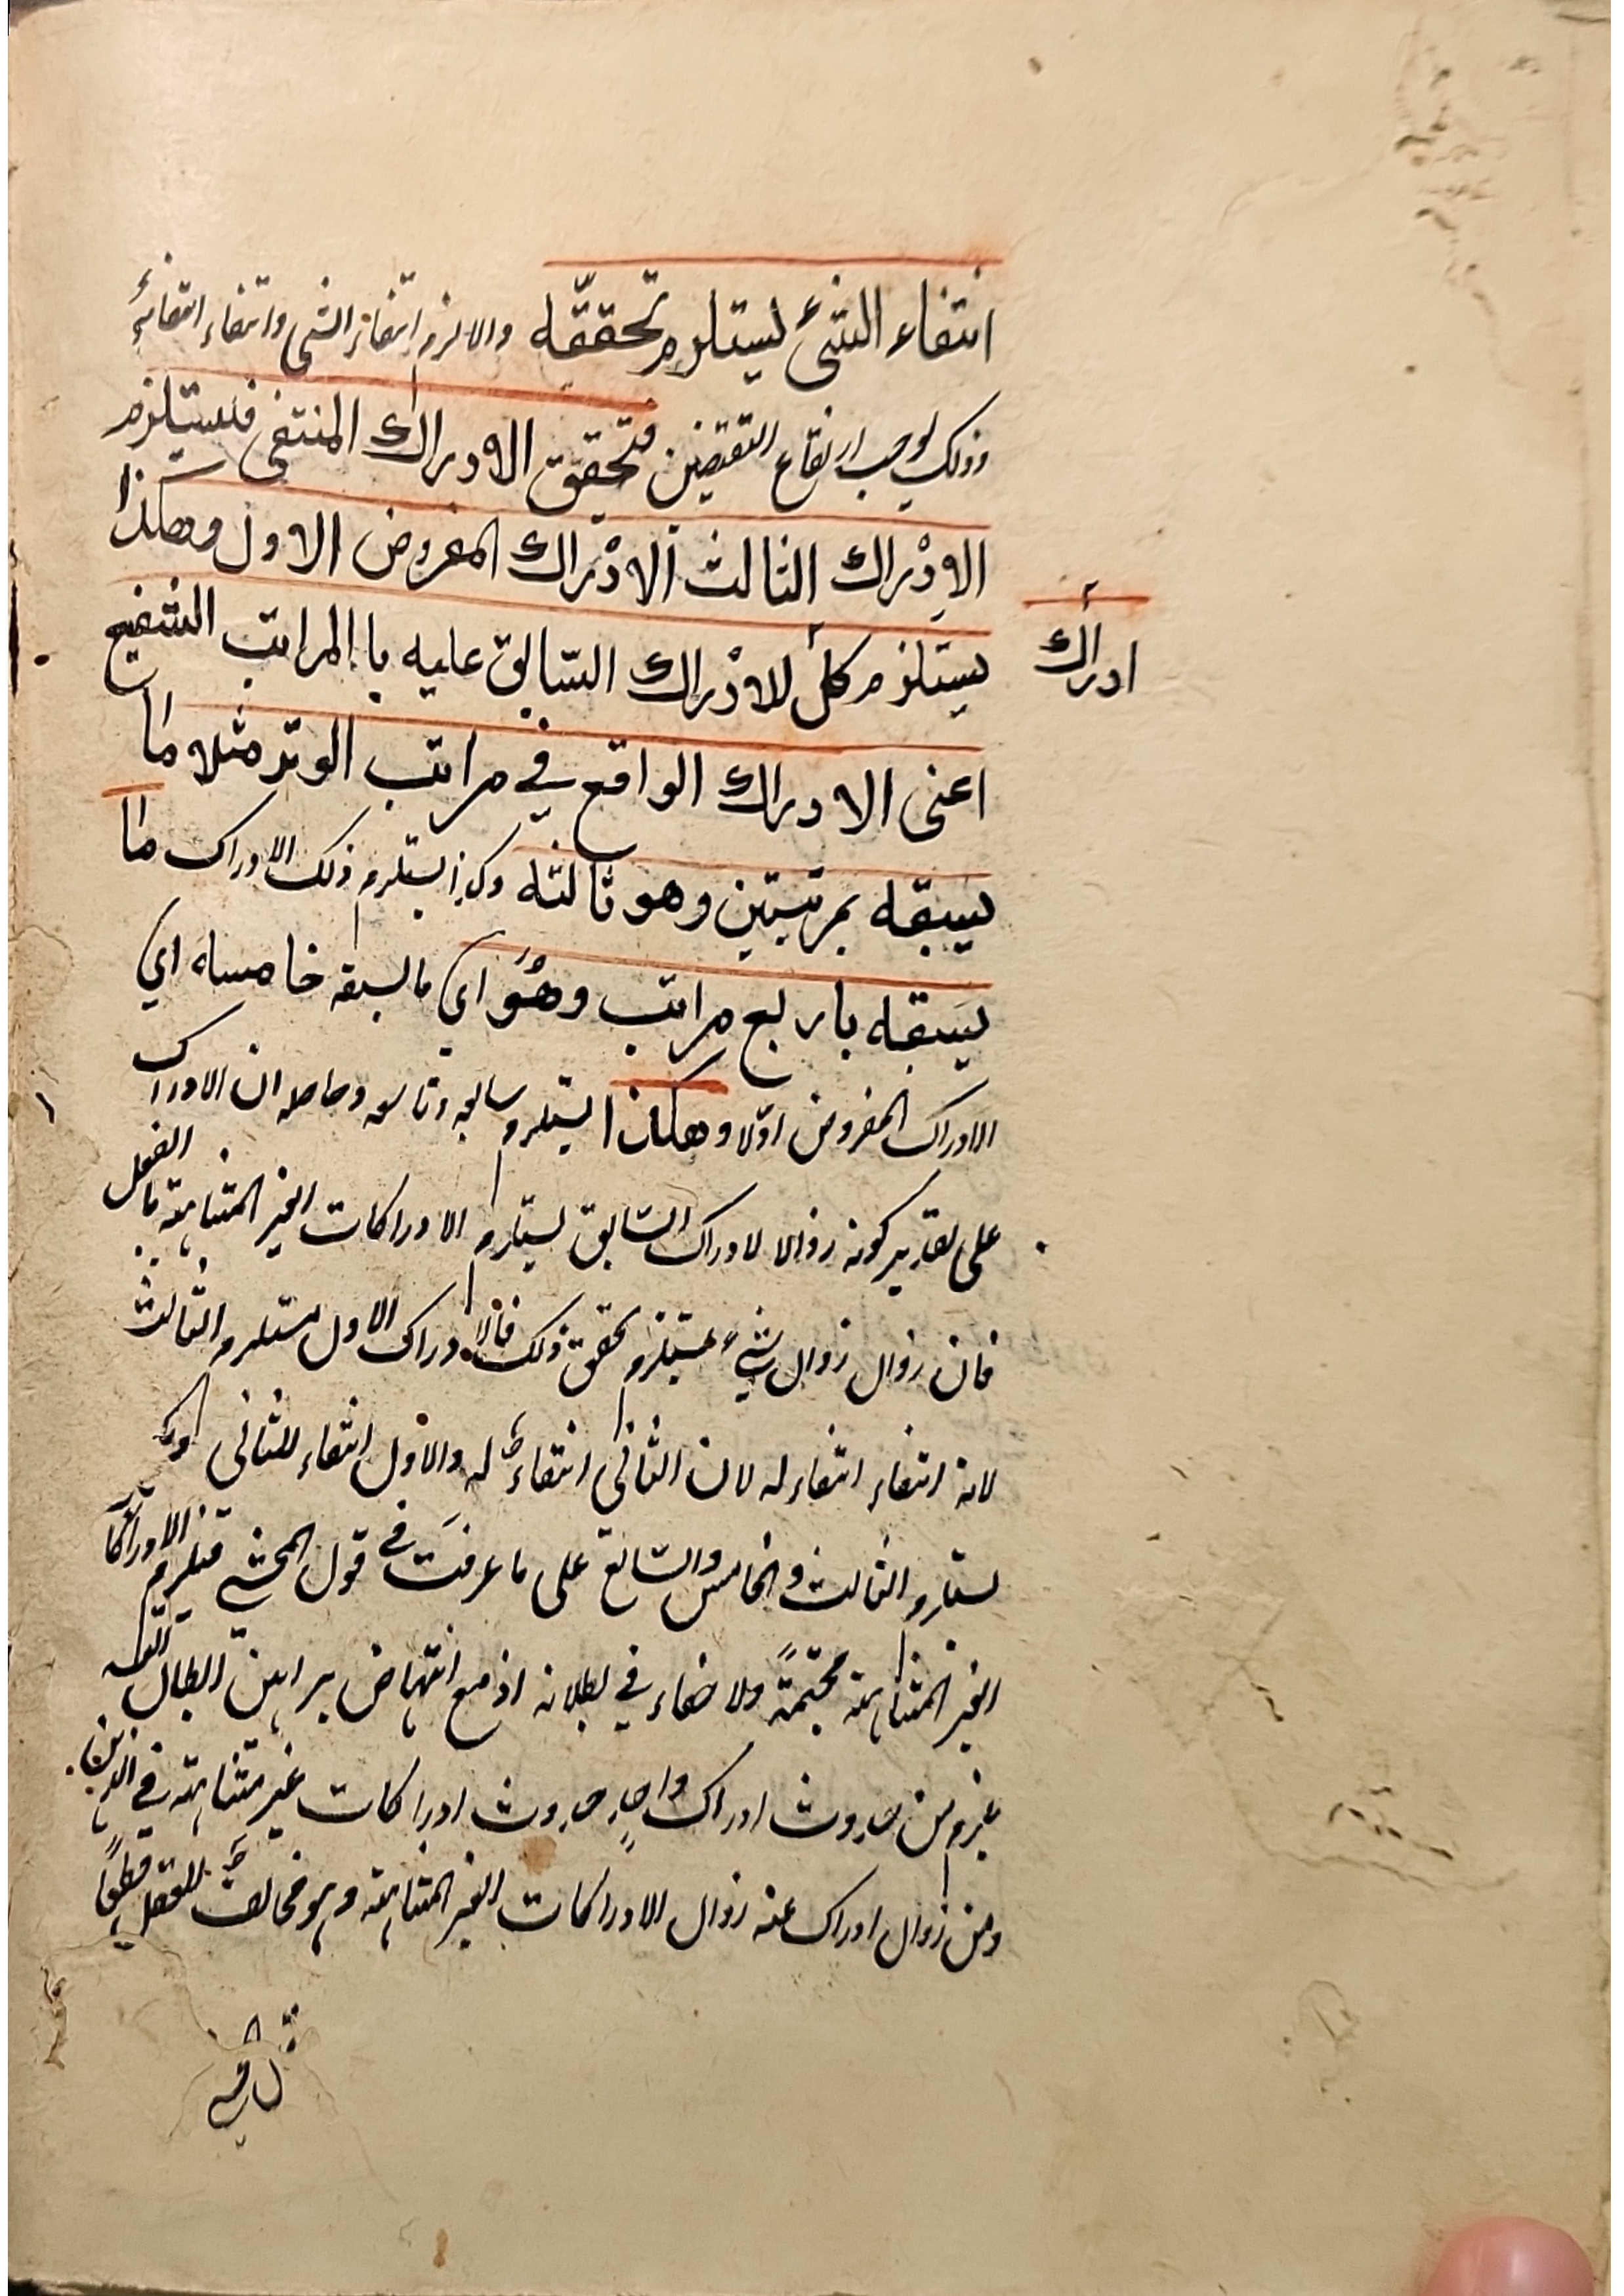 انتفاء الشئ يستلزم تحققه والا لزم انتفاء الشی وانتفاء انتفائه
وذلک یوجب ارتفاع النقیضین فتحقق الادراك المنتفى فيستلزم
الادراك الثالث الادراك المفروض الاول وهكذا
يستلزم كل للادراك السابق عليه با المراتب الشفع
ادراك
اعنى الادراك الواقع في مراتب الوتر مثلا ما
يسبقه بمرتبتين وهو ثالثه وکذا یستلزم ذلک الادراک ما
يسبقه باربع مراتب وهُوَ ای ما یسبقه خامسه اي
الادراک المفروض اوّلا وهكذا یستلزم سابعه وتاسعه وحاصله ان الادراک
علی تقدیر کونه زوالا لادراک السابق یستلزم الادراکات الغیر المتناهیة بالفعل
فان زوال زوال شیء یستلزم تحقق ذلک فالادراک الاول یستلزم الثالث
لانه انتفاء انتفاء له لان الثانی انتفاء له والاول انتفاء للثانی
یستلزم الثالث والخامس والسابع علی ما عرفت فی قول المحشی فیلزم الادراکات
الغیر المتناهیة مجتمعةً ولا خفاء فی بطلانه اذ مع انتهاض براهین ابطال
یلزم من حدوث ادراک واحدٍ حدوث ادراکات غیر متناهیة فی الذهن
ومن زوال ادراک عنه زوال الادراکات الغیر المتناهیة وهو مخالف للعقل قطعًا